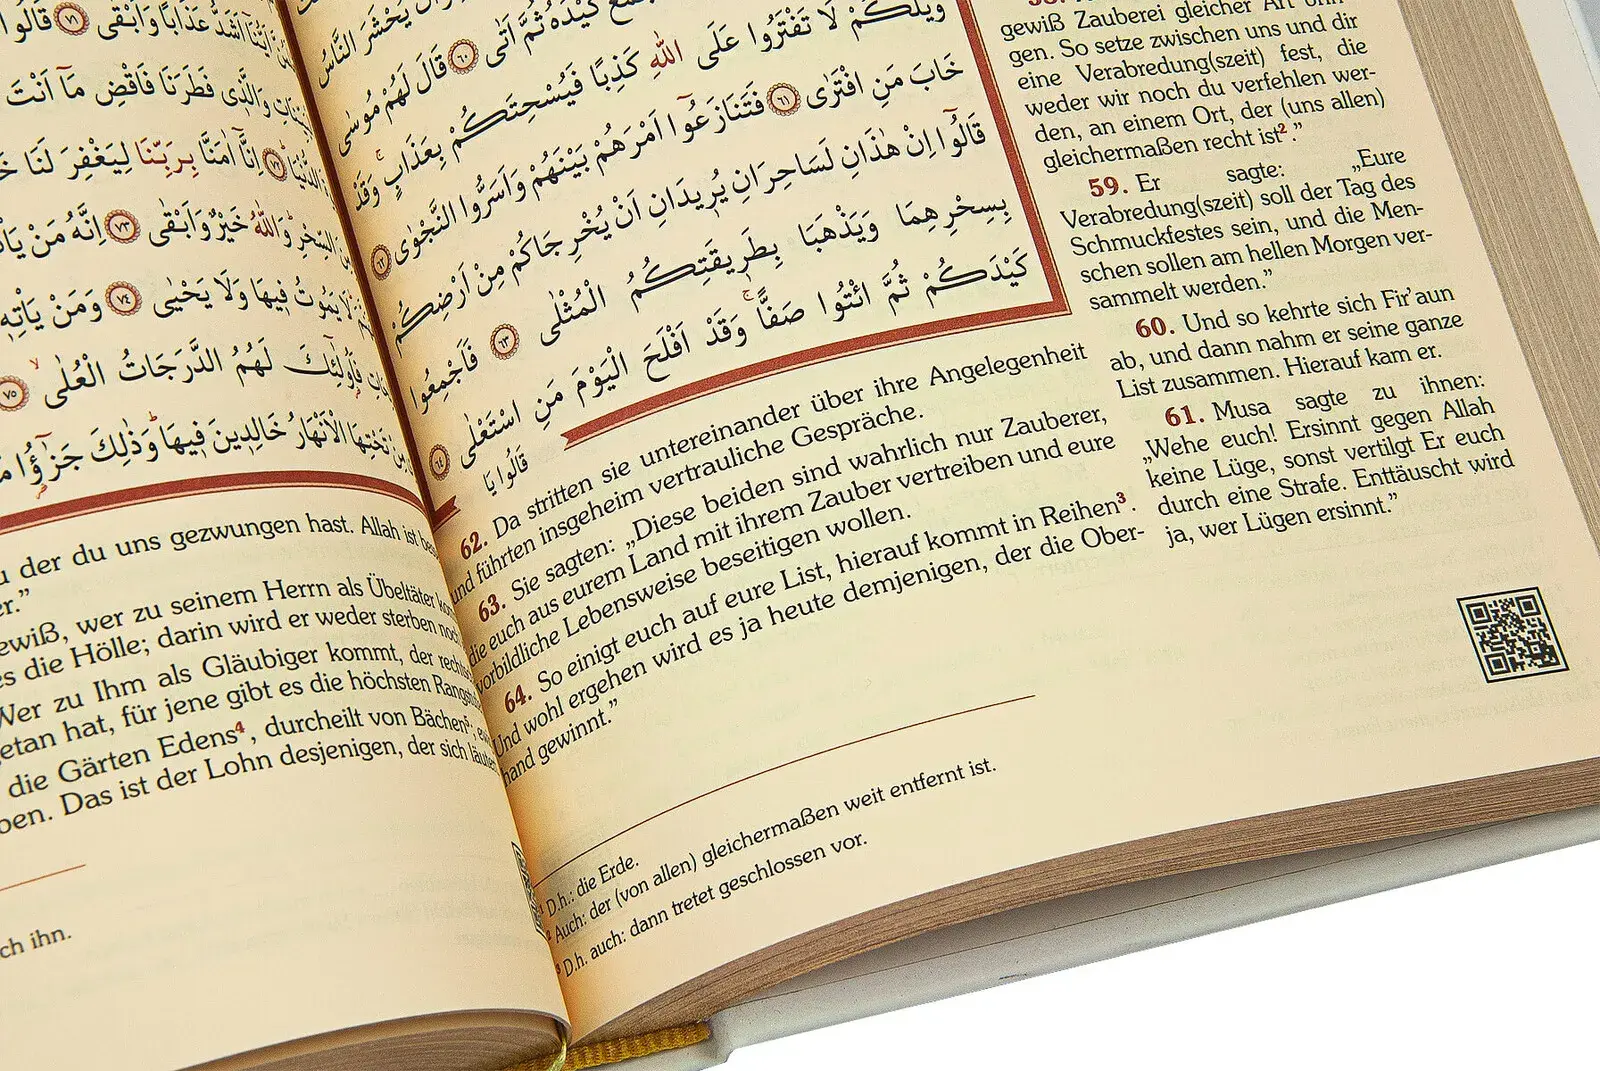 وَيْلَكُمْ لَا تَفْتَرُوا عَلَى اللّٰهِ كَذِبًا فَيُسْحِتَكُمْ بِعَذَابٍ وَقَدْ
خَابَ مَنِ افْتَرٰى ٦١ فَتَنَازَعُٓوا اَمْرَهُمْ بَيْنَهُمْ وَاَسَرُّوا النَّجْوٰى ٦٢
قَالُٓوا اِنْ هٰذَانِ لَسَاحِرَانِ يُرِيدَانِ اَنْ يُخْرِجَاكُمْ مِنْ اَرْضِكُمْ
بِسِحْرِهِمَا وَيَذْهَبَا بِطَرِيقَتِكُمُ الْمُثْلٰى ٦٣ فَاَجْمِعُوا
كَيْدَكُمْ ثُمَّ ائْتُوا صَفًّا وَقَدْ اَفْلَحَ الْيَوْمَ مَنِ اسْتَعْلٰى ٦٤
قَالُوا يَا
gewiß Zauberei gleicher Art
gen. So setze zwischen uns und dir
eine Verabredung(szeit) fest, die
weder wir noch du verfehlen wer-
den, an einem Ort, der (uns allen)
gleichermaßen recht ist².”
59. Er sagte: „Eure
Verabredung(szeit) soll der Tag des
Schmuckfestes sein, und die Men-
schen sollen am hellen Morgen ver-
sammelt werden.”
60. Und so kehrte sich Fir’aun
ab, und dann nahm er seine ganze
List zusammen. Hierauf kam er.
61. Musa sagte zu ihnen:
„Wehe euch! Ersinnt gegen Allah
keine Lüge, sonst vertilgt Er euch
durch eine Strafe. Enttäuscht wird
ja, wer Lügen ersinnt.”
62. Da stritten sie untereinander über ihre Angelegenheit
und führten insgeheim vertrauliche Gespräche.
63. Sie sagten: „Diese beiden sind wahrlich nur Zauberer,
die euch aus eurem Land mit ihrem Zauber vertreiben und eure
vorbildliche Lebensweise beseitigen wollen.
64. So einigt euch auf eure List, hierauf kommt in Reihen³.
Und wohl ergehen wird es ja heute demjenigen, der die Ober-
hand gewinnt.”
¹ D.h.: die Erde.
² Auch: der (von allen) gleichermaßen weit entfernt ist.
³ D.h. auch: dann tretet geschlossen vor.
وَالَّذِى فَطَرَنَا فَاقْضِ مَٓا اَنْتَ
اِنَّٓا اٰمَنَّا بِرَبِّنَا لِيَغْفِرَ لَنَا
وَاللّٰهُ خَيْرٌ وَاَبْقٰى ٧٣ اِنَّهُ مَنْ
لَا يَمُوتُ فِيهَا وَلَا يَحْيٰى ٧٤ وَمَنْ يَاْتِهِ
فَاُولٰٓئِكَ لَهُمُ الدَّرَجَاتُ الْعُلٰى ٧٥
الْاَنْهَارُ خَالِدِينَ فِيهَا وَذٰلِكَ جَزٰٓؤُا
der du uns gezwungen hast. Allah ist
wer zu seinem Herrn als Übeltäter
die Hölle; darin wird er weder sterben noch
Wer zu Ihm als Gläubiger kommt, der
hat, für jene gibt es die höchsten
die Gärten Edens⁴, durcheilt von Bächen⁵,
Das ist der Lohn desjenigen, der sich
ihn.